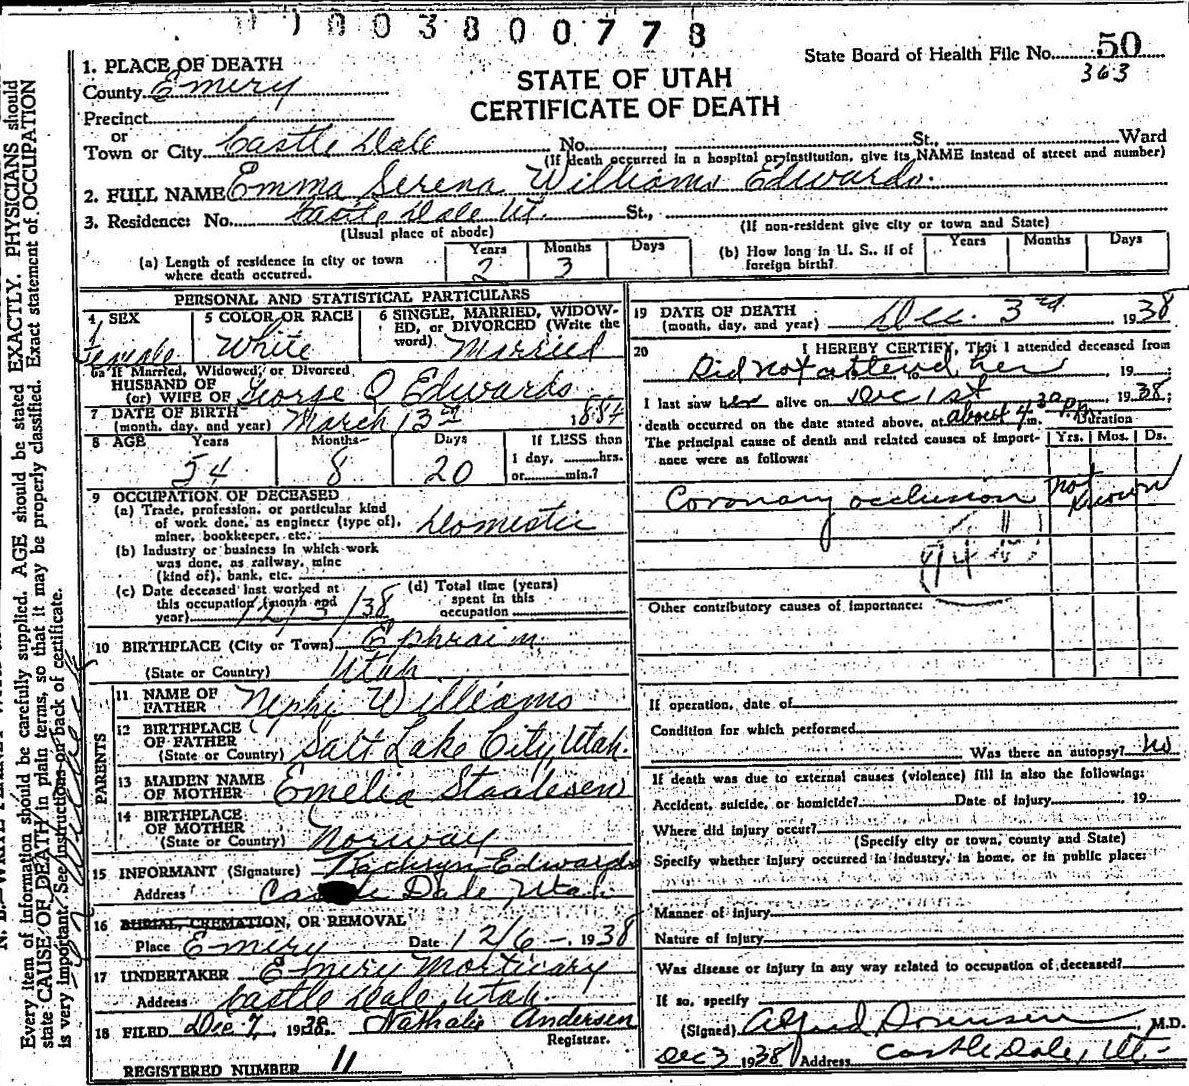 003800778
State Board of Health File No. 50
363
STATE OF UTAH
CERTIFICATE OF DEATH
1. PLACE OF DEATH
County Emery
Precinct
or
Town or City Castle Dale No. St., Ward
(If death occurred in a hospital or institution, give its NAME instead of street and number)
2. FULL NAME Emma Serena Williams Edwards.
3. Residence: No. Castle Dale Ut. St.,
(Usual place of abode) (If non-resident give city or town and State)
(a) Length of residence in city or town where death occurred. Years 2 Months 3 Days
(b) How long in U. S., if of foreign birth? Years Months Days
PERSONAL AND STATISTICAL PARTICULARS
4 SEX Female
5 COLOR OR RACE White
6 SINGLE, MARRIED, WIDOWED, or DIVORCED (Write the word) Married
6a If Married, Widowed, or Divorced
HUSBAND OF
(or) WIFE OF George Q Edwards
7 DATE OF BIRTH
(month, day, and year) March 13th 1884
8 AGE Years 54 Months 8 Days 20 If LESS than 1 day, hrs. or min.?
9 OCCUPATION OF DECEASED
(a) Trade, profession, or particular kind
of work done, as engineer (type of),
miner, bookkeeper, etc. Domestic
(b) Industry or business in which work
was done, as railway, mine
(kind of), bank, etc.
(c) Date deceased last worked at
this occupation (month and
year) 12/3/38
(d) Total time (years)
spent in this
occupation
10 BIRTHPLACE (City or Town) Ephraim
(State or Country) Utah
PARENTS
11 NAME OF
FATHER Nephi Williams
12 BIRTHPLACE
OF FATHER
(State or Country) Salt Lake City, Utah.
13 MAIDEN NAME
OF MOTHER Emelia Staalesen
14 BIRTHPLACE
OF MOTHER
(State or Country) Norway
15 INFORMANT (Signature) Kathryn Edwards
Address Castle Dale Utah
16 BURIAL, CREMATION, OR REMOVAL
Place Emery Date 12/6-, 1938
17 UNDERTAKER Emery Mortuary
Address Castle Dale, Utah.
18 FILED Dec 7, 1938. Nathalie Andersen
Registrar.
REGISTERED NUMBER 11
19 DATE OF DEATH
(month, day, and year) Dec. 3rd, 1938
20 I HEREBY CERTIFY, That I attended deceased from
Did not attend her, 19 ;
I last saw her alive on Dec 1st, 1938;
death occurred on the date stated above, at about 4 30 P.m.
The principal cause of death and related causes of importance were as follows:
Duration
Yrs. Mos. Ds.
Coronary occlusion not known
94
Other contributory causes of importance:
If operation, date of
Condition for which performed
Was there an autopsy? No
If death was due to external causes (violence) fill in also the following:
Accident, suicide, or homicide? Date of injury , 19
Where did injury occur?
(Specify city or town, county and State)
Specify whether injury occurred in industry, in home, or in public place:
Manner of injury
Nature of injury
Was disease or injury in any way related to occupation of deceased?
If so, specify
(Signed) Alfred Sorensen, M.D.
Dec 3 1938 Address Castle Dale, Ut-
Every item of information should be carefully supplied. AGE should be stated EXACTLY. PHYSICIANS should
state CAUSE OF DEATH in plain terms, so that it may be properly classified. Exact statement of OCCUPATION
is very important. See instructions on back of certificate.